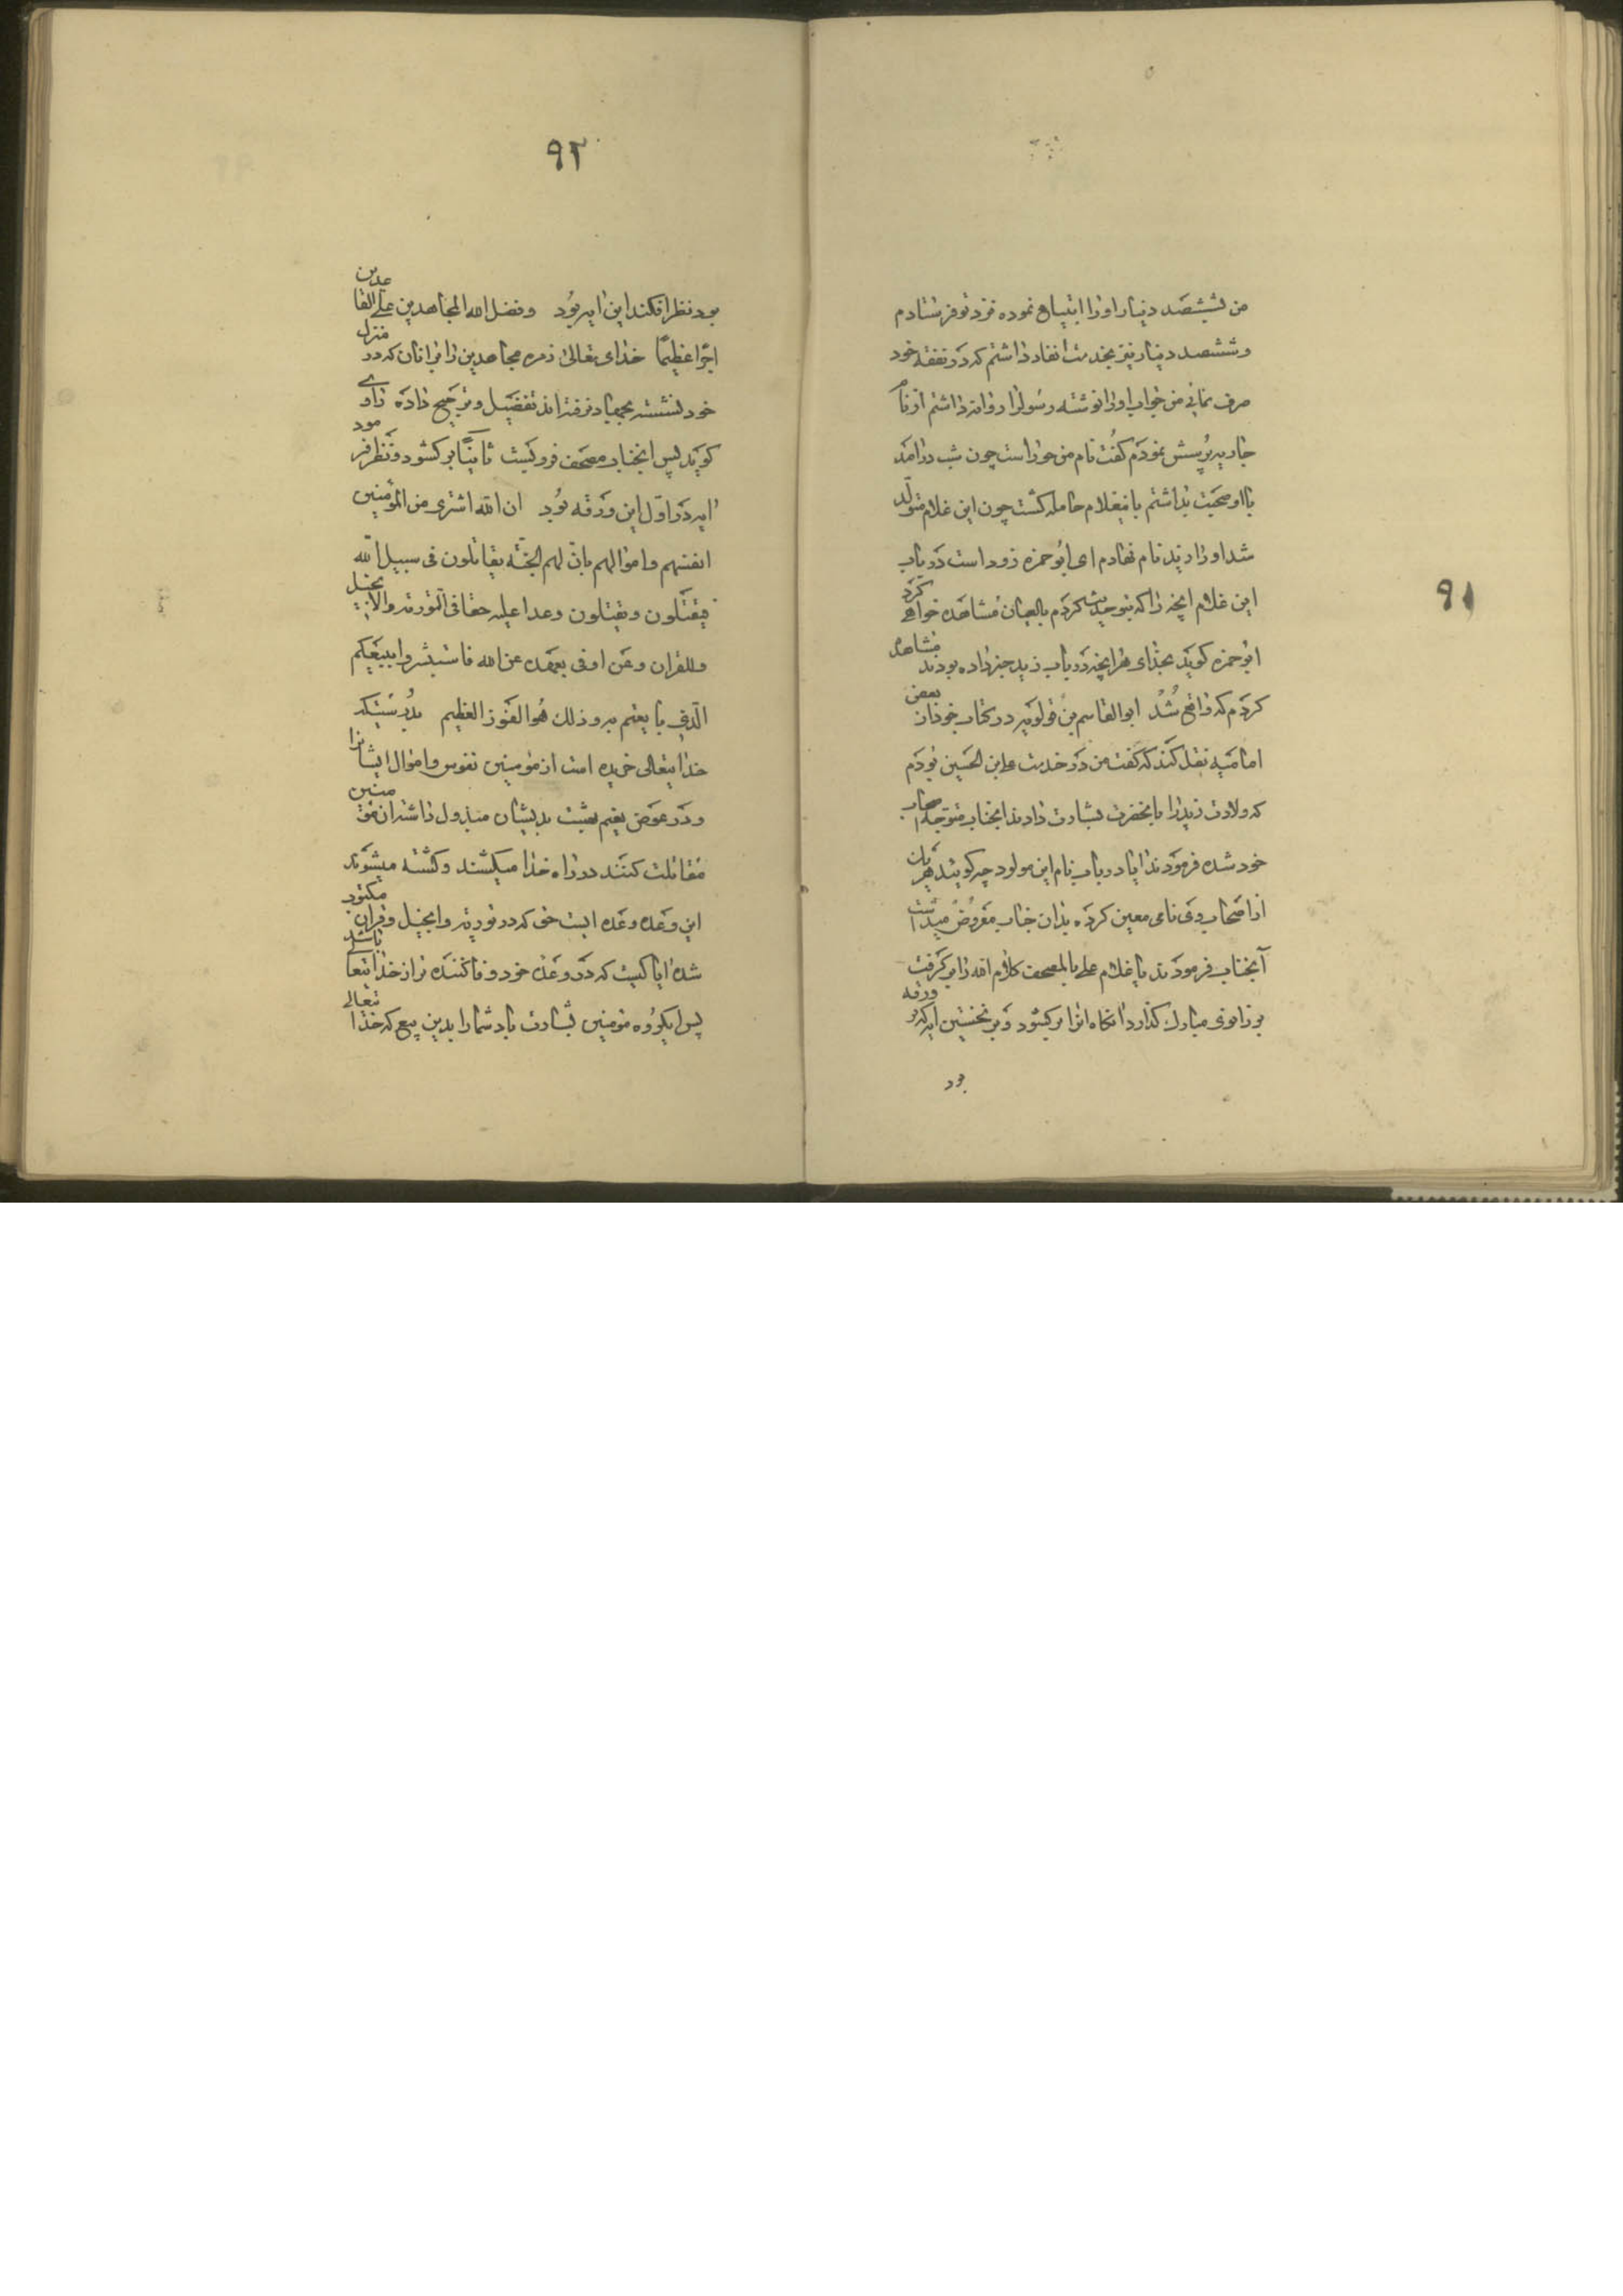 ۹۱
من بششصد دینار او را ابتیاع نموده نزد تو فرستادم
و ششصد دینار نیز بخدمت انفاد داشتم که در نفقه خود
صرف نمائی من جواب او را نوشته رسول را روانه داشتم از نام
جاریه پرسش نمودم گفت نام من حوراست چون شب درآمد
با او صحبت بداشتم باینغلام حامله گشت چون این غلام متولد
شد او را زید نام نهادم ای ابو حمزه زود است در باب
این غلام انچه را که بتو حدیث کردم بالعیان مشاهده خواهی کرد
ابو حمزه گوید بخدای هر انچه در باب زید خبر داده بودند مشاهده
کردم که واقع شد ابو القاسم بن قولویه در کتاب خود از بعض
امامیه نقل کند که گفت من در خدمت علی بن الحسین بودم
که ولادت زید را بانحضرت بشارت دادند انجناب متوجه اصحاب
خود شده فرمودند ایا در باب نام این مولود چه گویند هر یک
از اصحاب وی نامی معین کرده بدان جناب معروض میداشت
آنجناب فرمودند یا غلام علی بالمصحف کلام الله را بر گرفت
بر زانوی مبارک گذارد انگاه انرا بر گشود و بر نخستین ایه که بر ورقه
بود
۹۲
بود نظر افکند این ایه بود و فضل الله المجاهدین علی القاعدین
اجرا عظیما خدای تعالی زمره مجاهدین را بر انان که در منزل
خود نشسته بجهاد نرفته اند تفضیل و ترجیح داده راوی
گوید پس انجناب مصحف فرو بست ثانیا بر گشود و نظر فرمود
ایه در اول این ورقه بود ان الله اشتری من المؤمنین
انفسهم و اموالهم بان لهم الجنة یقاتلون فی سبیل الله
فیقتلون و یقتلون وعدا علیه حقا فی التوریة والانجیل
والقران و من اوفی بعهده من الله فاستبشروا ببیعکم
الذی بایعتم به و ذلک هو الفوز العظیم بدرستیکه
خدایتعالی خریده است از مومنین نفوس و اموال ایشانرا
و در عوض نعیم بهشت بدیشان مبذول داشته ان مؤمنین
مقاتلت کنند در راه خدا میکشند و کشته میشوند
این وعده وعده ایست حق که در توریة و انجیل و قران مکتوب
شده ایا کیست که در وعده خود وفا کننده تر از خدایتعالی باشد
پس ایگروه مومنین بشارت باد شما را بدین بیع که خدا تعالی